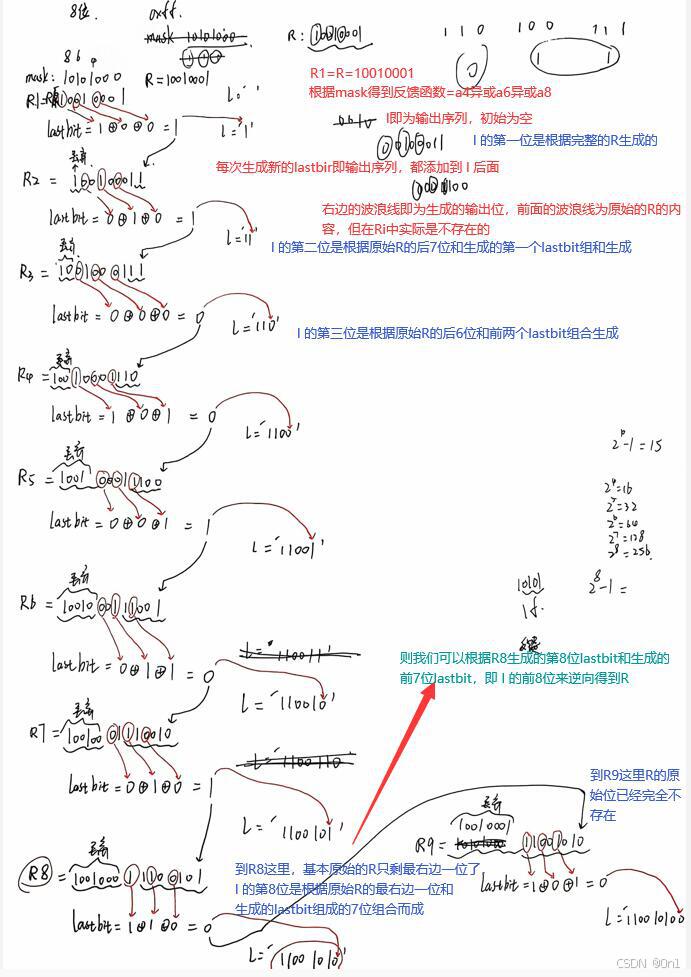 8位. 0xff.
mask 10101000
R: 10010001
1 1 0 1 0 0 1 1 1
8 6 4
mask: 10101000 R=10010001
R1=R
10010001
L='
R1=R=10010001
根据mask得到反馈函数=a4异或a6异或a8
lastbit = 1⊕0⊕0 = 1
L='1'
l即为输出序列，初始为空
丢弃
l 的第一位是根据完整的R生成的
每次生成新的lastbir即输出序列，都添加到 l 后面
R2 = 100100011
右边的波浪线即为生成的输出位，前面的波浪线为原始的R的内
容，但在Ri中实际是不存在的
lastbit = 0⊕1⊕0 = 1
L='11'
丢弃
l 的第二位是根据原始R的后7位和生成的第一个lastbit组和生成
R3 = 1001000111
lastbit = 0⊕0⊕0 = 0
L='110'
l 的第三位是根据原始R的后6位和前两个lastbit组合生成
丢弃
R4 = 10010001110
lastbit = 1⊕0⊕1 = 0
L='1100'
2⁴-1=15
丢弃
R5 = 100100011100
2⁴=16
2⁵=32
2⁶=64
2⁷=128
2⁸=256.
lastbit = 0⊕0⊕1 = 1
L='11001'
丢弃
10101 2⁸-1=
1f.
R6 = 1001000111001
L='110011'
则我们可以根据R8生成的第8位lastbit和生成的
前7位lastbit，即 l 的前8位来逆向得到R
lastbit = 0⊕1⊕1 = 0
L='110010'
丢弃
R7 = 10010001110010
L='1100110'
lastbit = 0⊕1⊕0 = 1
到R9这里R的原
始位已经完全不
存在
L='1100101'
丢弃
10010001
R9= 11001010
丢弃
R8 = 100100011100101
到R8这里，基本原始的R只剩最右边一位了
l 的第8位是根据原始R的最右边一位和
生成的lastbit组成的7位组合而成
lastbit=1⊕0⊕1=0
lastbit = 1⊕1⊕0 = 0
L='110010100'
L='11001010'
CSDN @0n1